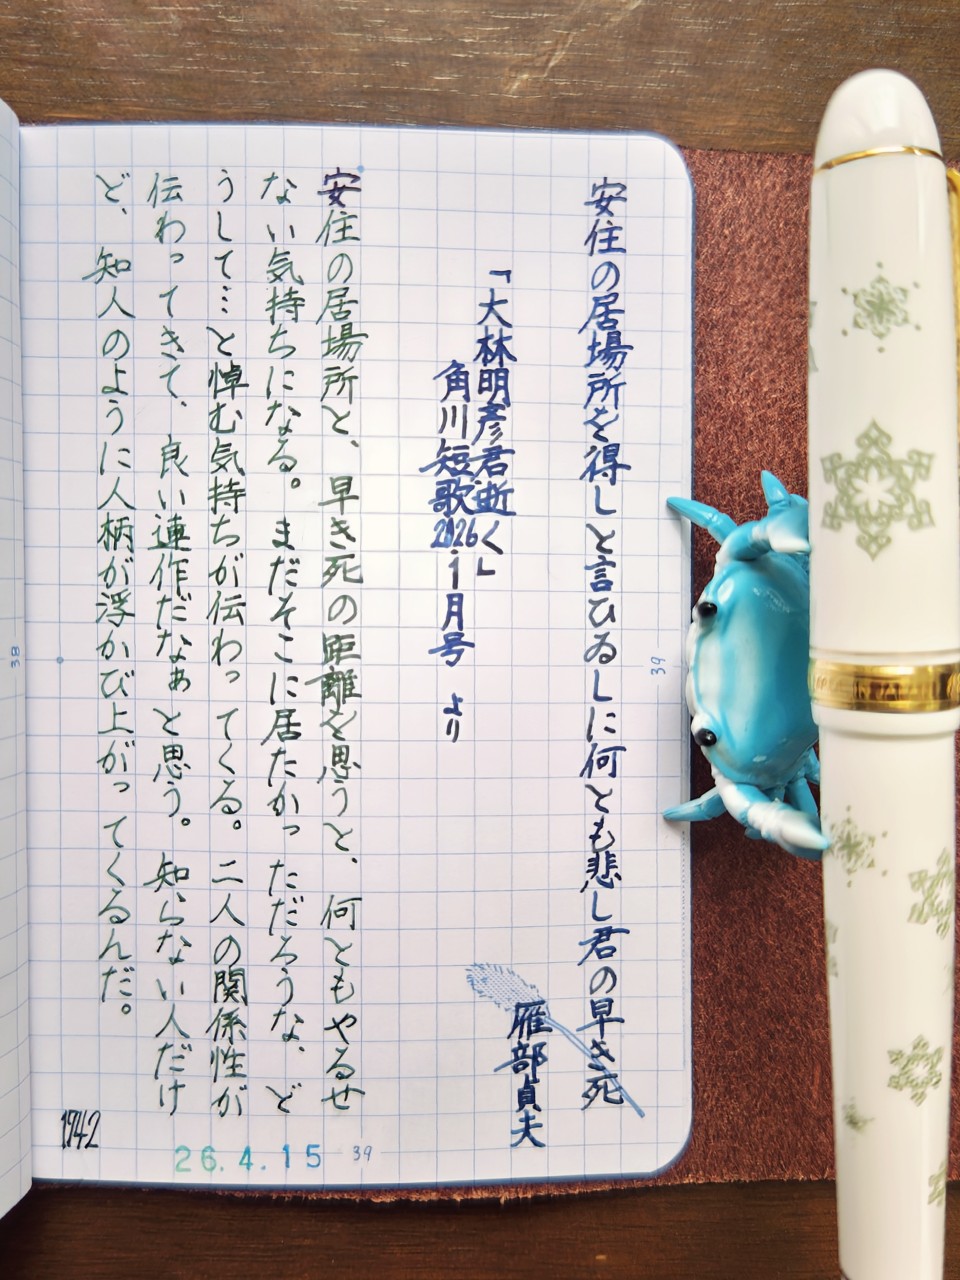 安住の居場所を得しと言ひゐしに何とも悲し君の早き死
雁部貞夫
「大林明彦君逝く」
角川短歌2026.1月号 より
安住の居場所と、早き死の距離を思うと、何ともやるせ
ない気持ちになる。まだそこに居たかっただろうな、ど
うして…と悼む気持ちが伝わってくる。二人の関係性が
伝わってきて、良い連作だなぁと思う。知らない人だけ
ど、知人のように人柄が浮かび上がってくるんだ。
1942
26.4.15
39
39
38